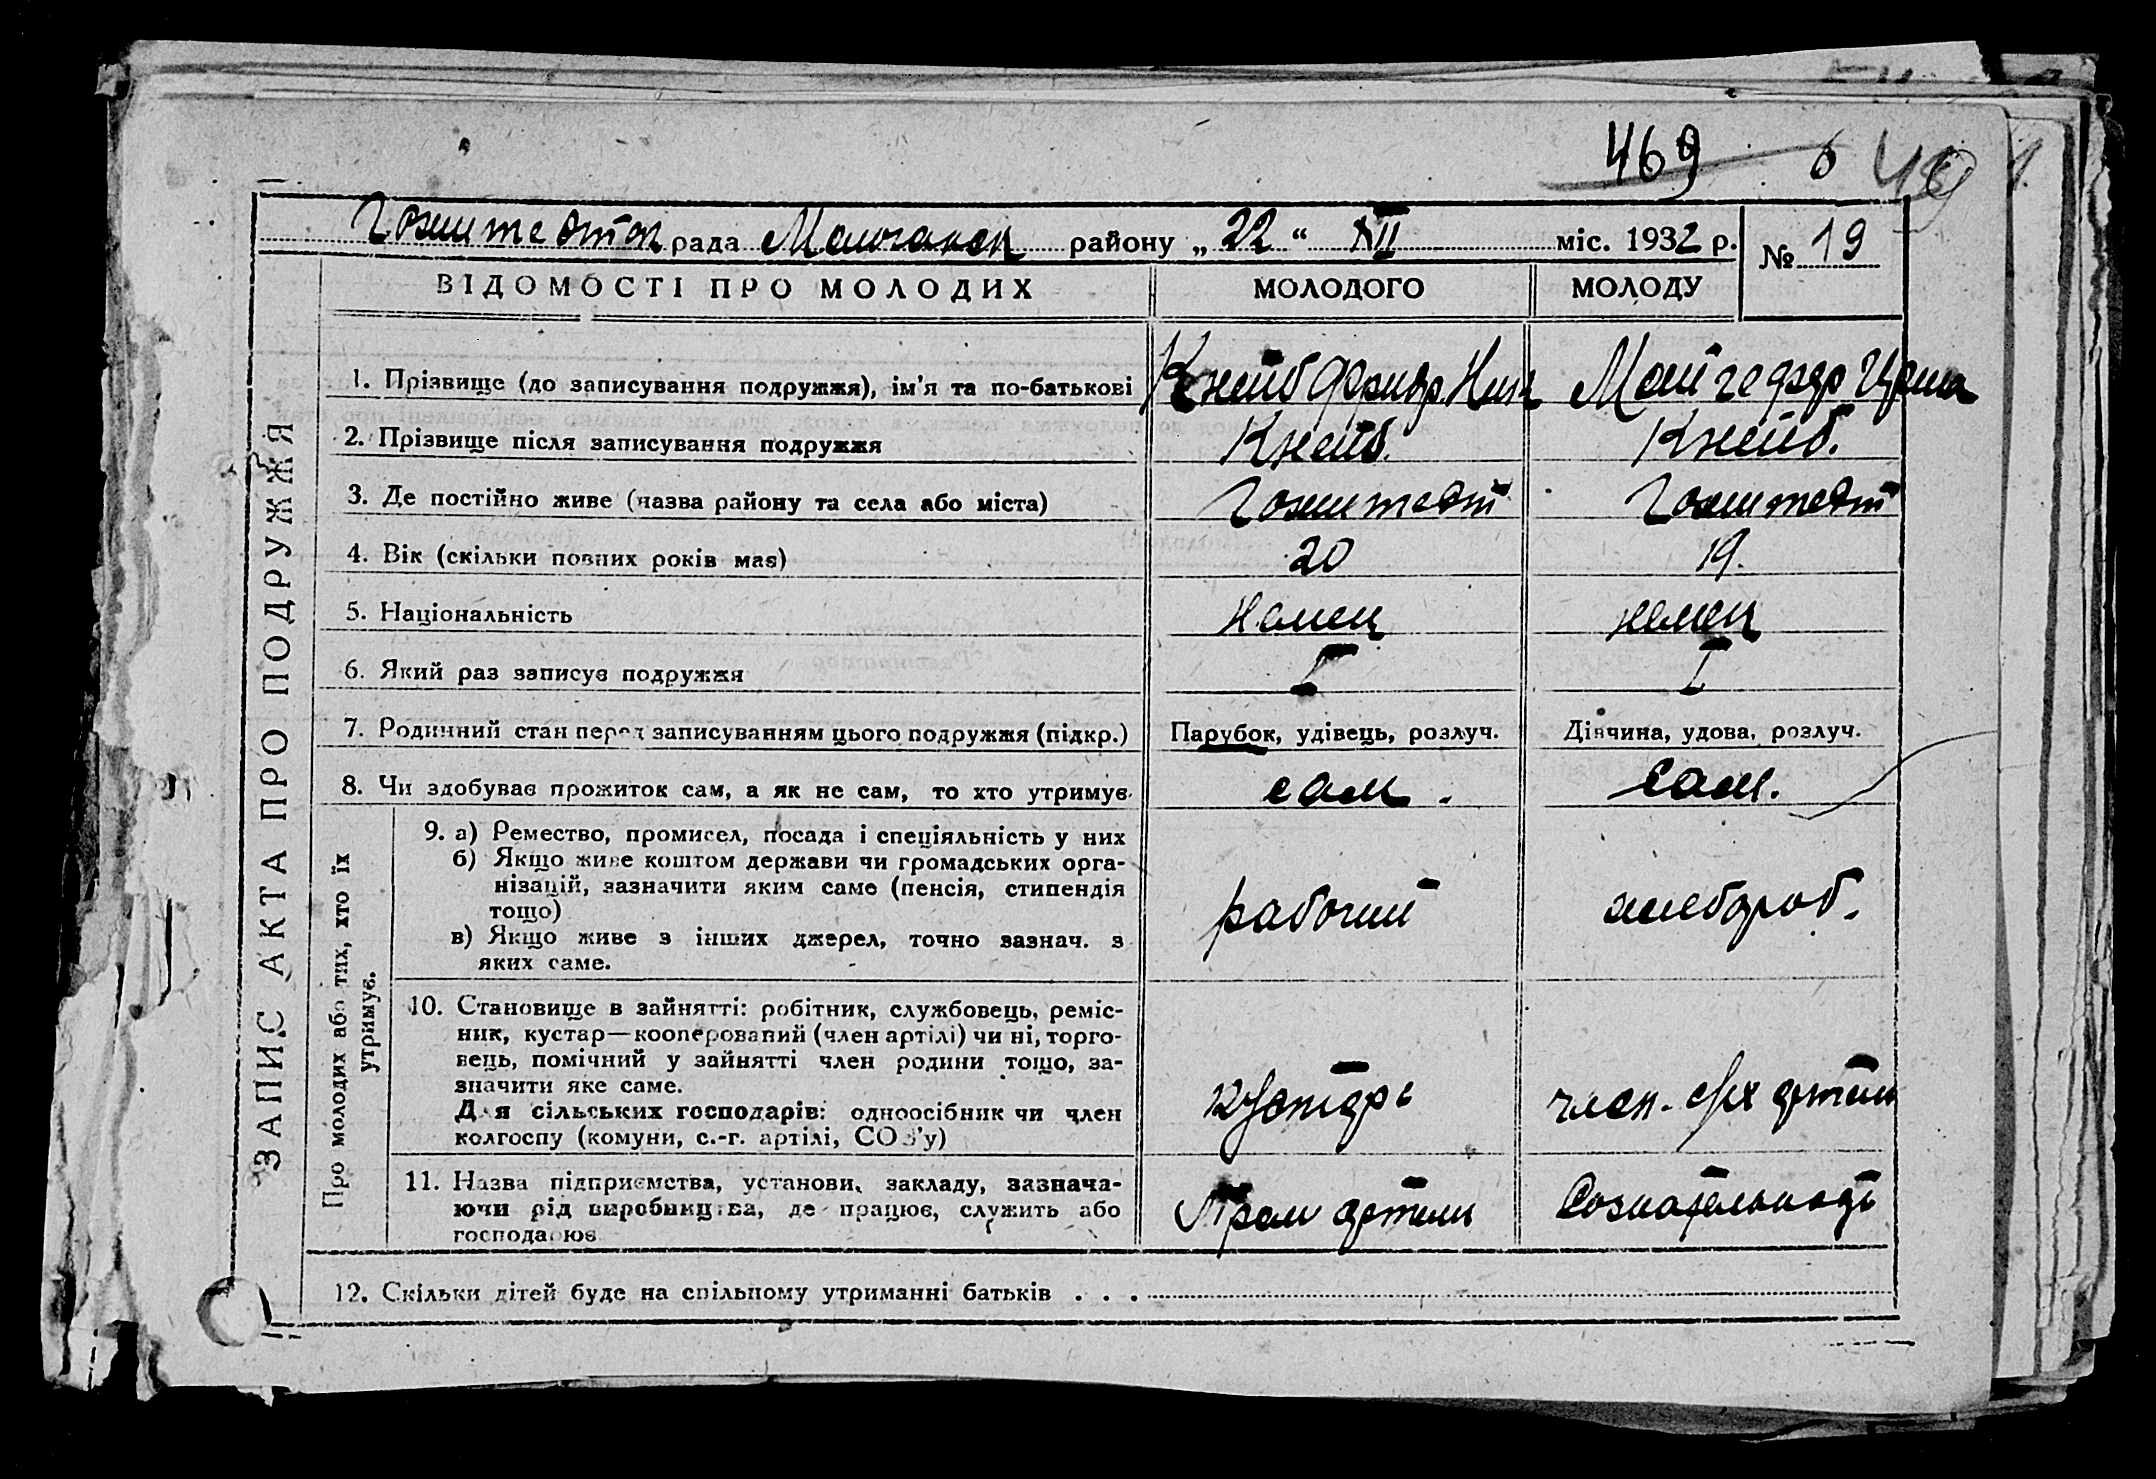 469 6 469
Гохштедтск рада Молочанск району „22“ XII міс. 1932 р. № 19
ВІДОМОСТІ ПРО МОЛОДИХ МОЛОДОГО МОЛОДУ
ЗАПИС АКТА ПРО ПОДРУЖЖЯ
1. Прізвище (до записування подружжя), ім'я та по-батькові Кнейб
2. Прізвище після записування подружжя Кнейб. Кнейб.
3. Де постійно живе (назва району та села або міста) Гохштедт Гохштедт
4. Вік (скільки повних років має) 20 19.
5. Національність немец немец
6. Який раз записує подружжя I I
7. Родинний стан перед записуванням цього подружжя (підкр.) Парубок, удівець, розлуч. Дівчина, удова, розлуч.
8. Чи здобуває прожиток сам, а як не сам, то хто утримує. сам. сам.
Про молодих або тих, хто їх
утримує.
9. а) Ремество, промисел, посада і спеціяльність у них
б) Якщо живе коштом держави чи громадських орга-
нізацій, зазначити яким саме (пенсія, стипендія
тощо)
в) Якщо живе з інших джерел, точно зазнач. з
яких саме.
рабочий хлебороб.
10. Становище в зайнятті: робітник, службовець, реміс-
ник, кустар—кооперований (член артілі) чи ні, торго-
вець, помічний у зайнятті член родини тощо, за-
значити яке саме.
Для сільських господарів: одноосібник чи член
колгоспу (комуни, с.-г. артілі, СОЗ'у)
кустарь член. с/х артели
11. Назва підприємства, установи, закладу, зазнача-
ючи рід виробництва, де працює, служить або
господарює
Пром артели
12. Скільки дітей буде на спільному утриманні батьків . . .